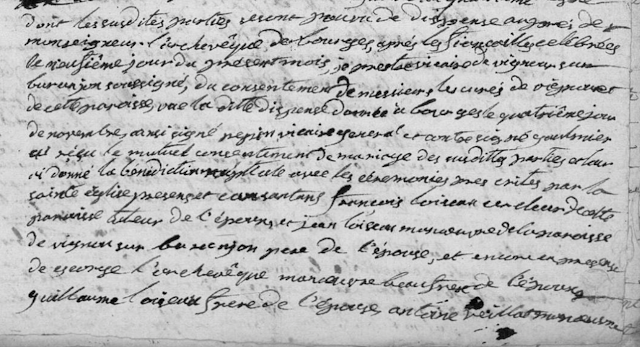 dont les susdites parties se sont pourvu de dispense aupres de
monseigneur l'archevêque de bourges, apres les fiançailles celebrées
le neufième jour du present mois, je prestre vicaire de vignou sur
barangon soussigné, du consentement de messieurs les curés de
de cette paroisse, vue la ditte dispense donnée a bourges le quatrième jour
de novembre, ainsi signé pepin vicaire general et contresigné
ai reçu le mutuel consentement de mariage des susdittes parties et leur
ai donné la bénédiction nuptiale avec les cérémonies prescrites par la
sainte église, presens et consentans françois loiseau de cette
paroisse tuteur de l'époux, et jean loiseau manœuvre de la paroisse
de vignou sur baranjon pere de l'épouse, et encore en presence
de george l'archevêque manœuvre beaufrere de l'époux
guillaume loiseau frere de l'épouse antoine veillat manœuvre